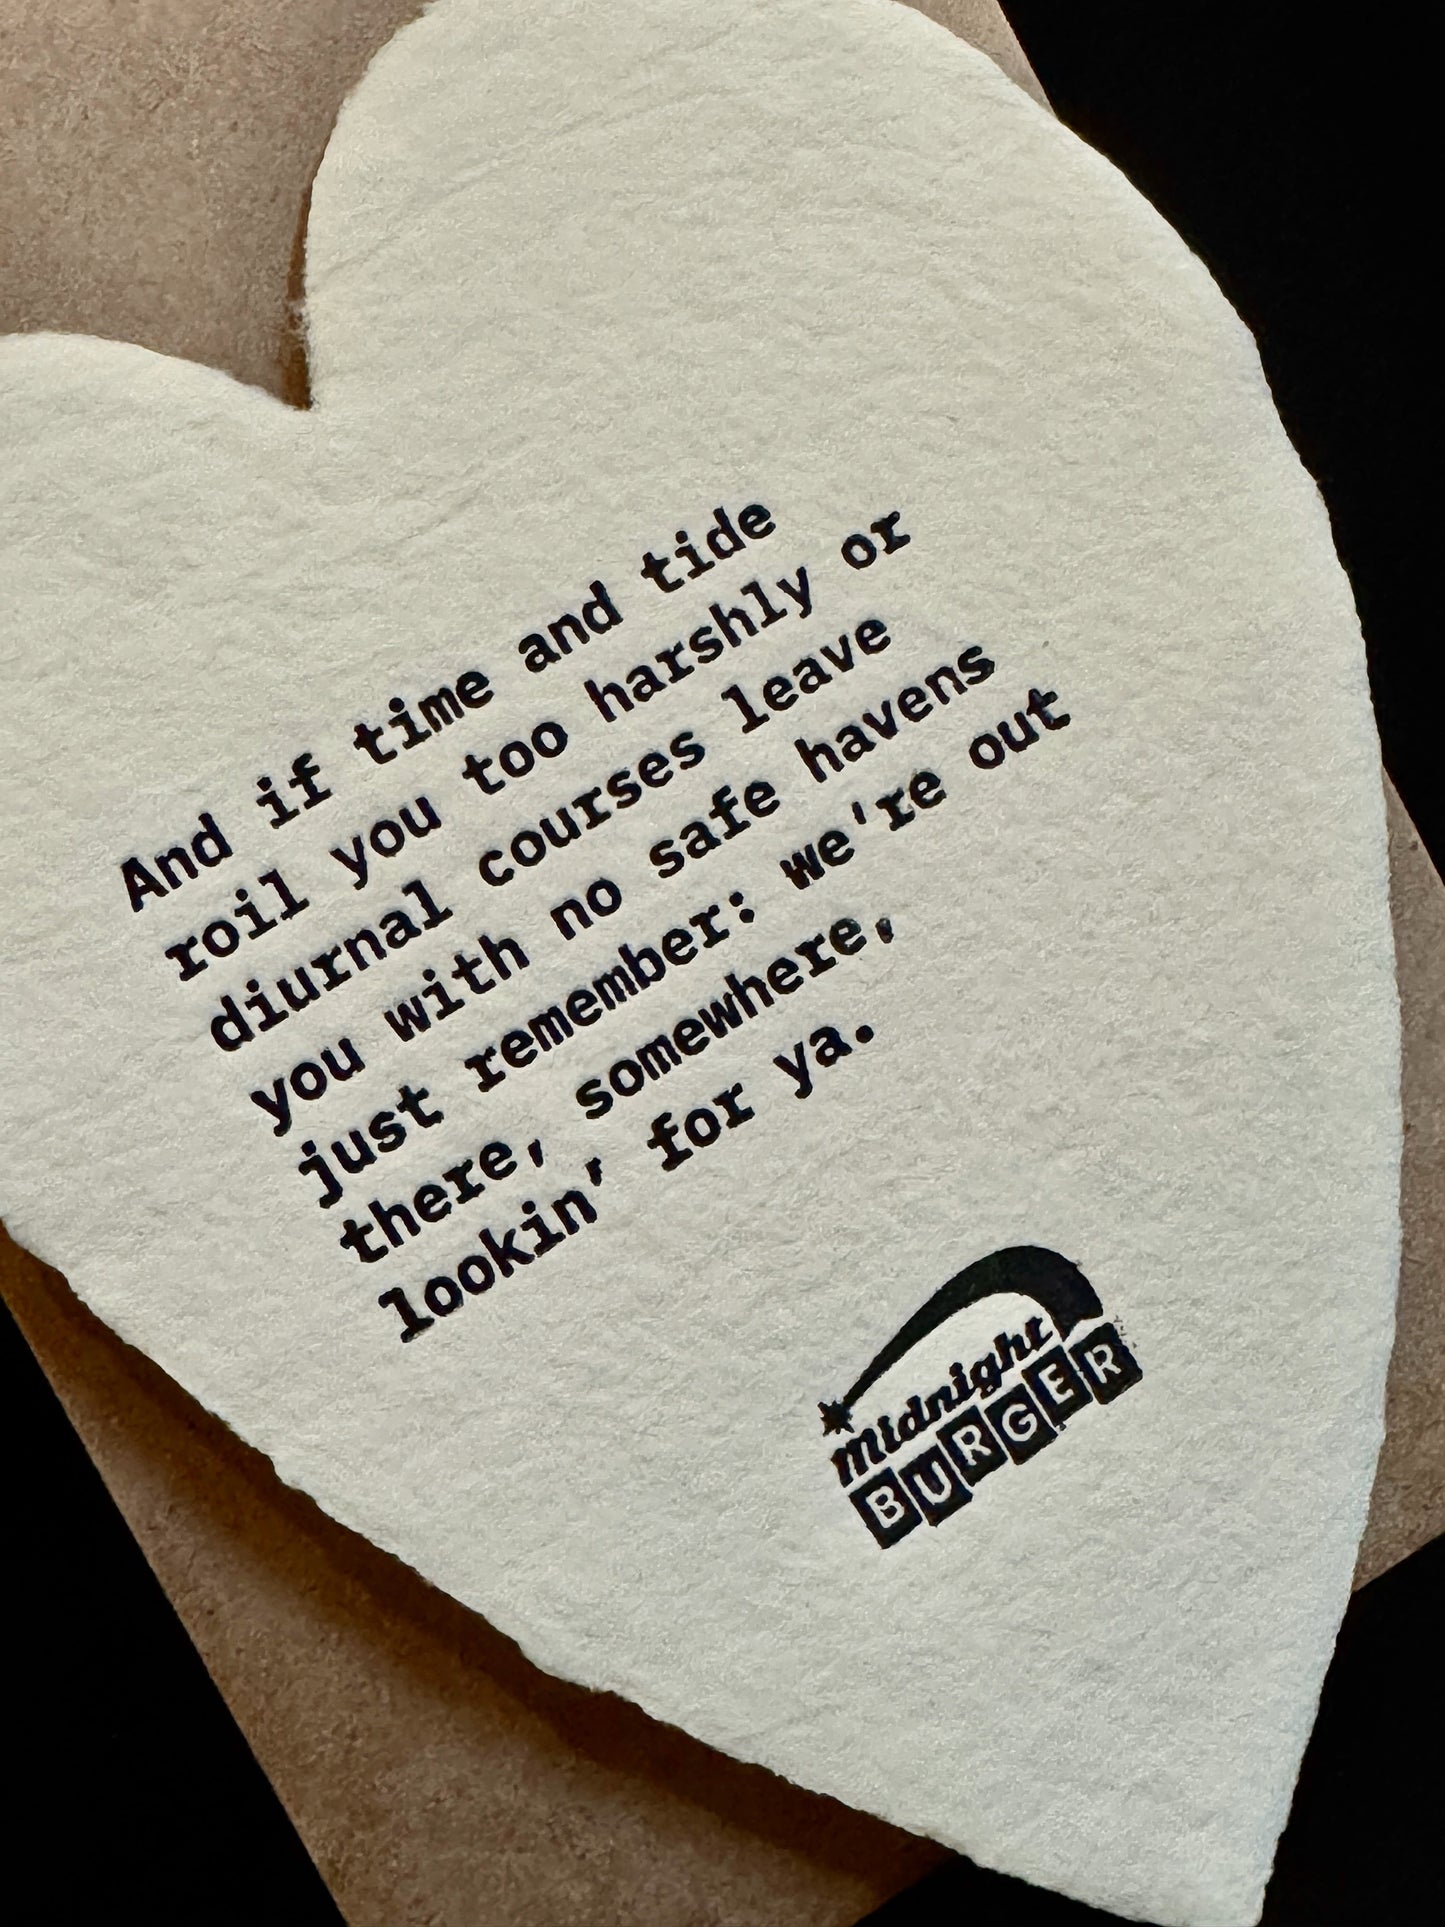 And if time and tide
roil you too harshly or
diurnal courses leave
you with no safe havens
just remember: we're out
there, somewhere,
lookin' for ya.
Midnight
BURGER